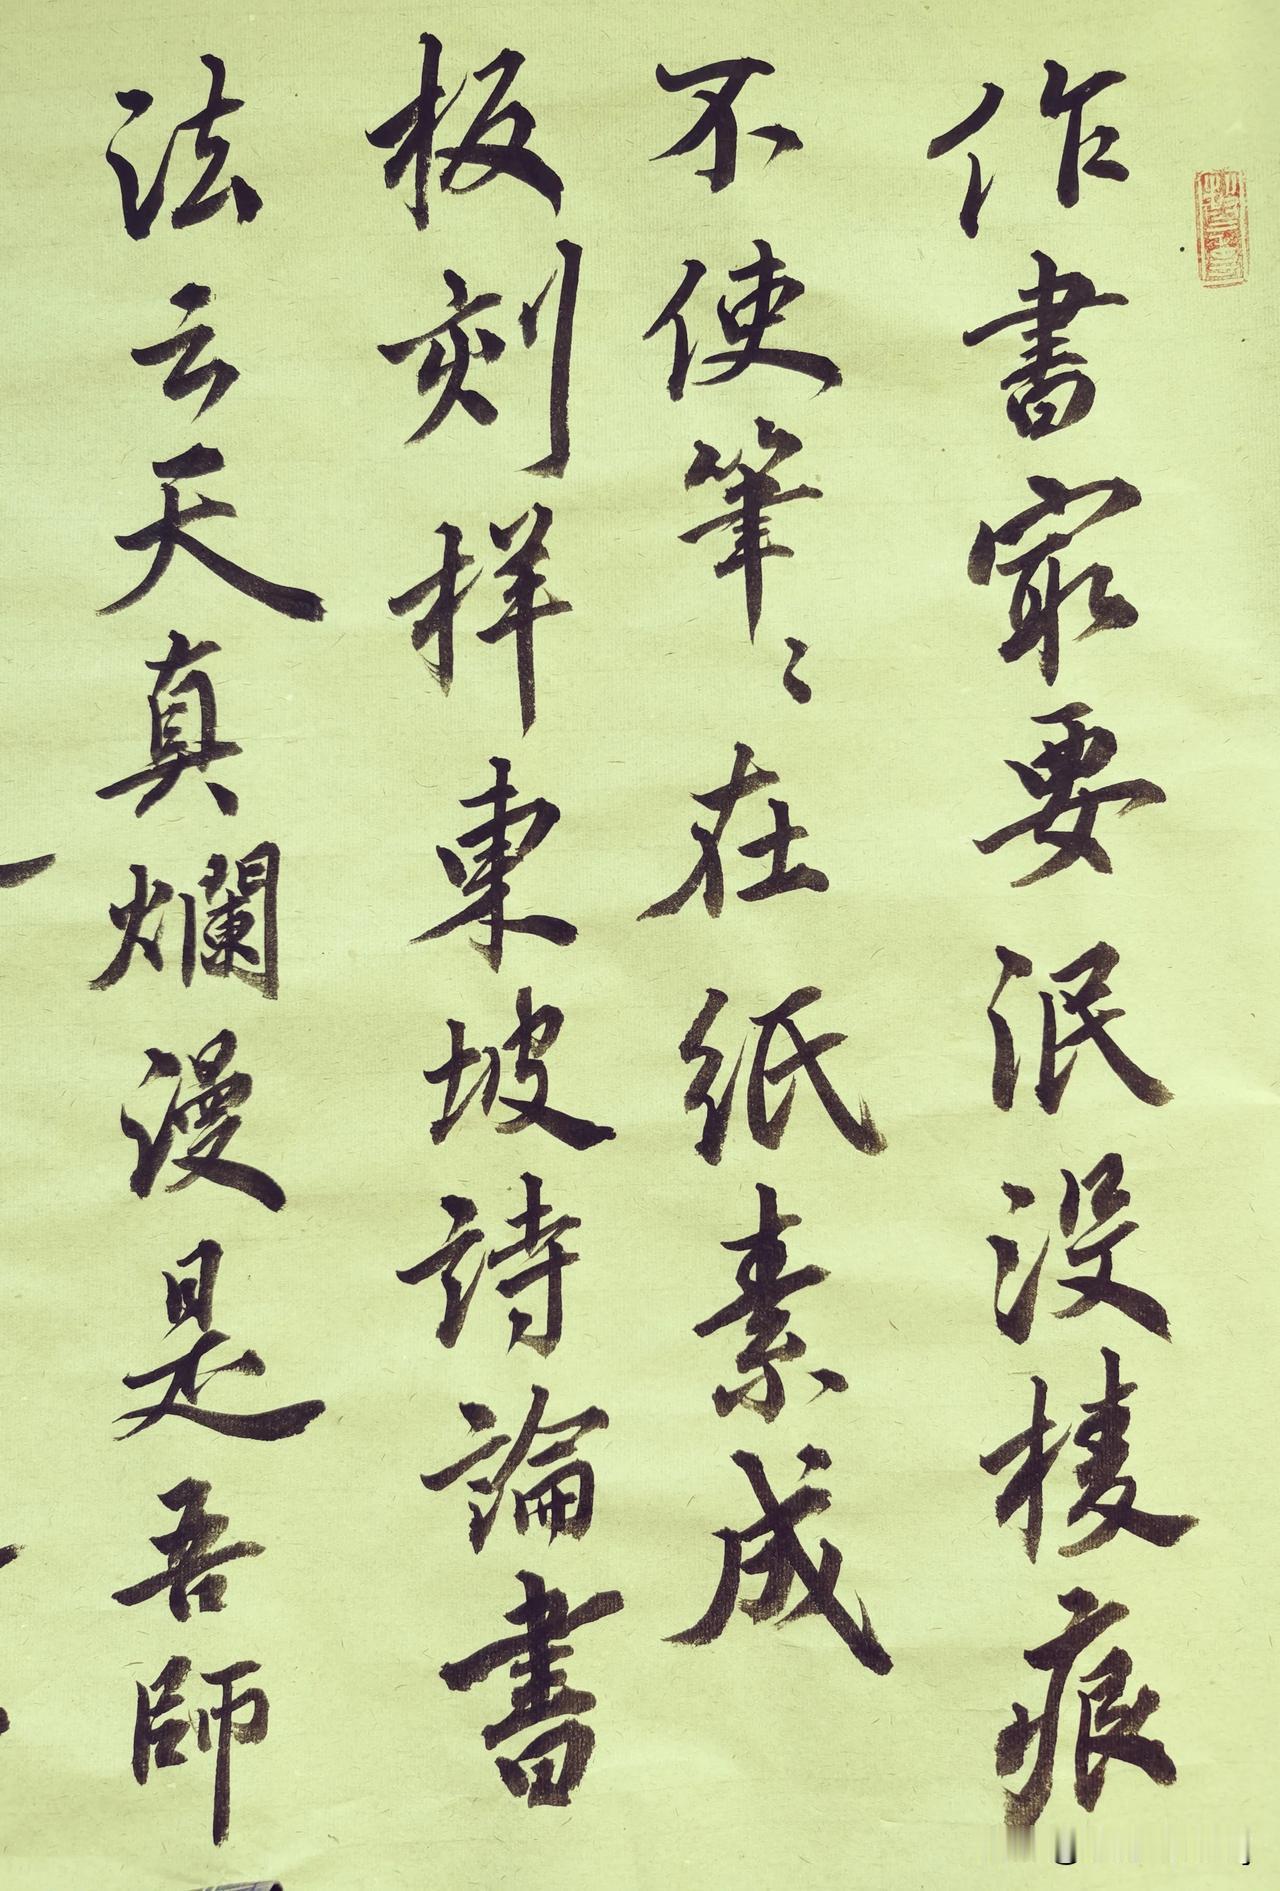 作書最要泯没棱痕
不使筆〻在紙素成
板刻样東坡詩論書
法云天真爛漫是吾師